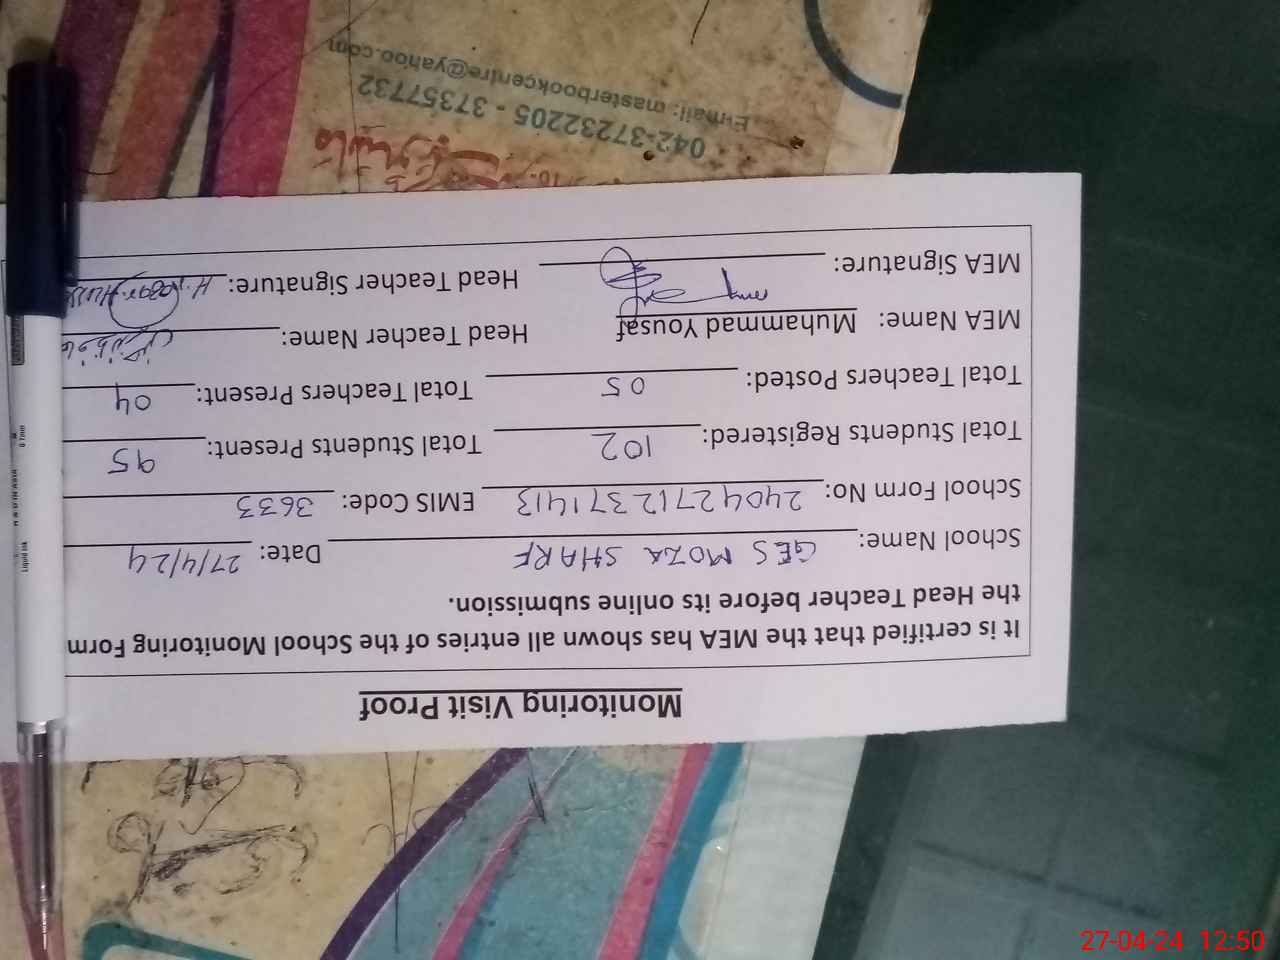 Monitoring Visit Proof
It is certified that the MEA has shown all entries of the School Monitoring Form
the Head Teacher before its online submission.
School Name: GES MOZA SHARF Date: 27/4/24
School Form No: 24042712371413 EMIS Code: 3633
Total Students Registered: 102 Total Students Present: 95
Total Teachers Posted: 05 Total Teachers Present: 04
MEA Name: Muhammad Yousaf Head Teacher Name:
MEA Signature: Head Teacher Signature:
042-37232205 - 37357732
E-mail: masterbookcentre@yahoo.com
Liquid ink
0.7mm
27-04-24 12:50